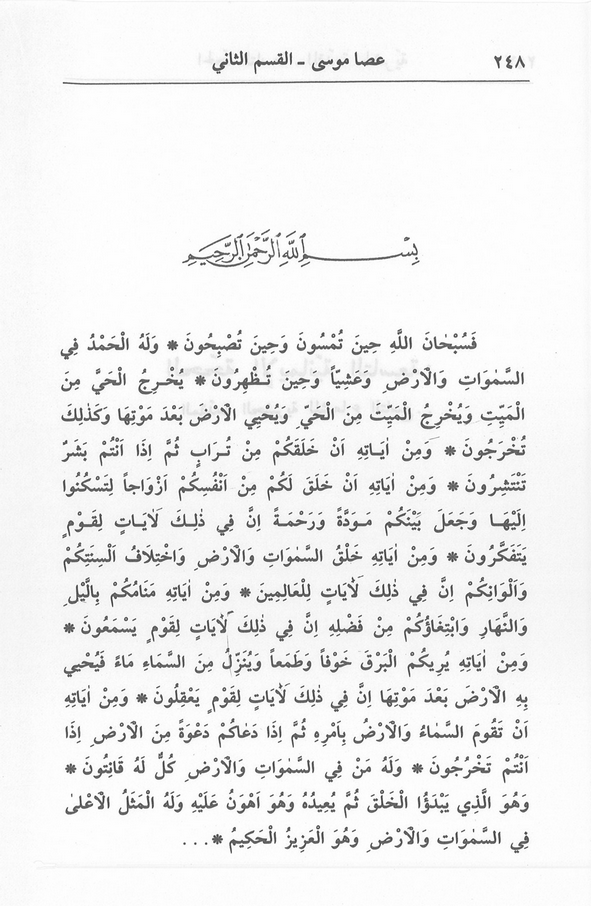 ٢٤٨ عصا موسى - القسم الثاني
بِسْمِ اللَّهِ الرَّحْمَٰنِ الرَّحِيمِ
فَسُبْحَانَ اللَّهِ حِينَ تُمْسُونَ وَحِينَ تُصْبِحُونَ * وَلَهُ الْحَمْدُ فِي
السَّمٰوَاتِ وَالْاَرْضِ وَعَشِيّاً وَحِينَ تُظْهِرُونَ * يُخْرِجُ الْحَيَّ مِنَ
الْمَيِّتِ وَيُخْرِجُ الْمَيِّتَ مِنَ الْحَيِّ وَيُحْيِي الْاَرْضَ بَعْدَ مَوْتِهَا وَكَذٰلِكَ
تُخْرَجُونَ * وَمِنْ اٰيَاتِهِ اَنْ خَلَقَكُمْ مِنْ تُرَابٍ ثُمَّ اِذَا اَنْتُمْ بَشَرٌ
تَنْتَشِرُونَ * وَمِنْ اٰيَاتِهِ اَنْ خَلَقَ لَكُمْ مِنْ اَنْفُسِكُمْ اَزْوَاجاً لِتَسْكُنُوا
اِلَيْهَا وَجَعَلَ بَيْنَكُمْ مَوَدَّةً وَرَحْمَةً اِنَّ فِي ذٰلِكَ لَاٰيَاتٍ لِقَوْمٍ
يَتَفَكَّرُونَ * وَمِنْ اٰيَاتِهِ خَلْقُ السَّمٰوَاتِ وَالْاَرْضِ وَاخْتِلَافُ اَلْسِنَتِكُمْ
وَاَلْوَانِكُمْ اِنَّ فِي ذٰلِكَ لَاٰيَاتٍ لِلْعَالِمِينَ * وَمِنْ اٰيَاتِهِ مَنَامُكُمْ بِالَّيْلِ
وَالنَّهَارِ وَابْتِغَاؤُكُمْ مِنْ فَضْلِهِ اِنَّ فِي ذٰلِكَ لَاٰيَاتٍ لِقَوْمٍ يَسْمَعُونَ *
وَمِنْ اٰيَاتِهِ يُرِيكُمُ الْبَرْقَ خَوْفاً وَطَمَعاً وَيُنَزِّلُ مِنَ السَّمَاءِ مَاءً فَيُحْيِي
بِهِ الْاَرْضَ بَعْدَ مَوْتِهَا اِنَّ فِي ذٰلِكَ لَاٰيَاتٍ لِقَوْمٍ يَعْقِلُونَ * وَمِنْ اٰيَاتِهِ
اَنْ تَقُومَ السَّمَاءُ وَالْاَرْضُ بِاَمْرِهِ ثُمَّ اِذَا دَعَاكُمْ دَعْوَةً مِنَ الْاَرْضِ اِذَا
اَنْتُمْ تَخْرُجُونَ * وَلَهُ مَنْ فِي السَّمٰوَاتِ وَالْاَرْضِ كُلٌّ لَهُ قَانِتُونَ *
وَهُوَ الَّذِي يَبْدَؤُا الْخَلْقَ ثُمَّ يُعِيدُهُ وَهُوَ اَهْوَنُ عَلَيْهِ وَلَهُ الْمَثَلُ الْاَعْلٰى
فِي السَّمٰوَاتِ وَالْاَرْضِ وَهُوَ الْعَزِيزُ الْحَكِيمُ * ...